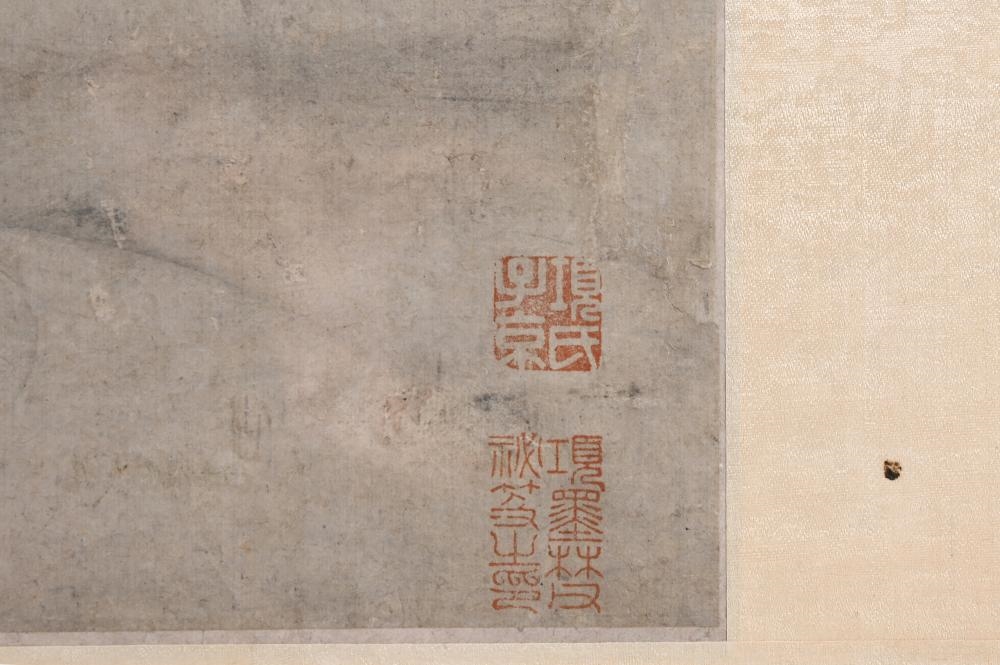 項氏
子京
項墨林父
祕笈之印